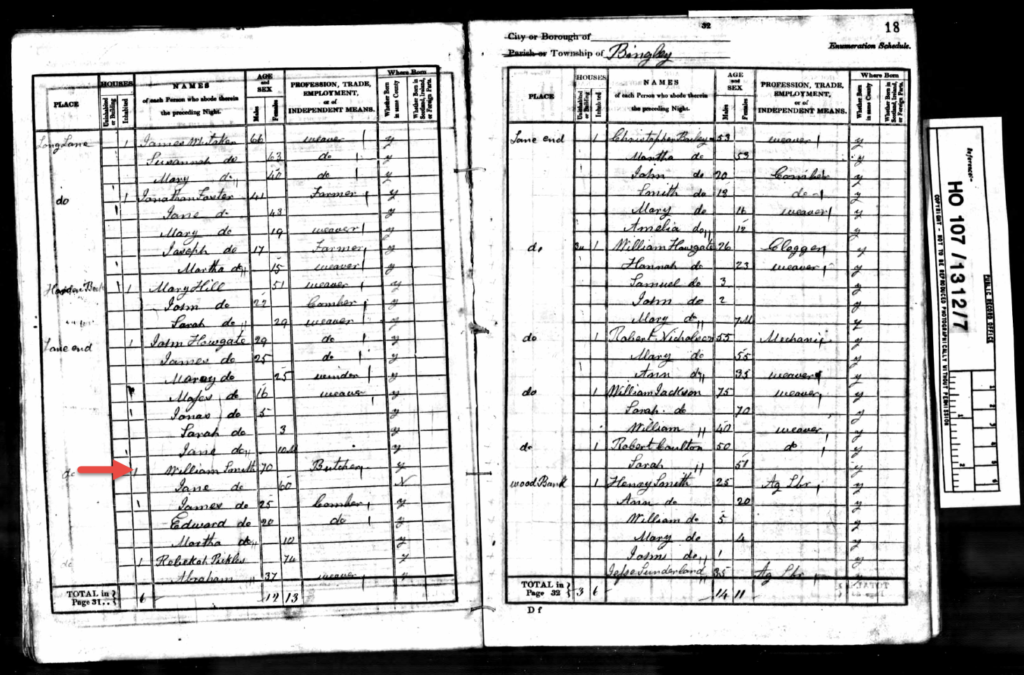 PLACE
HOUSES
Uninhabited or Building
Inhabited
NAMES of each Person who abode therein the preceding Night.
AGE and SEX
Males
Females
PROFESSION, TRADE, EMPLOYMENT, or of INDEPENDENT MEANS.
Where Born
Whether Born in same County
Whether Born in Scotland, Ireland, or Foreign Parts.
Long Lane 1 James 66 weaver y
Susannah do 63 do y
Mary do 40 do y
do 1 Jonathan Foster 41 Farmer y
Jane d. 43 y
Mary do 19 weaver y
Joseph do 17 Farmer y
Martha do 15 weaver y
1 Mary Hill 51 weaver y
John do 22 Comber y
Sarah do 29 weaver y
Lane end 1 John Howgate 29 do y
James do 25 do y
Mary do 25 winder y
Moses do 16 weaver y
Jonas do 5 y
Sarah do 3 y
Jane do 10 M y
do 1 William Smith 70 Butcher y
Jane do 60 N
James do 25 Comber y
Edward do 20 do y
Martha do 10 y
1 Rebekah Pickles 74 y
Abraham 37 weaver y
TOTAL in Page 31.. 6 12 13
32
18
City or Borough of
Parish or Township of Bingley
Enumeration Schedule.
PLACE
HOUSES
Uninhabited or Building
Inhabited
NAMES of each Person who abode therein the preceding Night.
AGE and SEX
Males
Females
PROFESSION, TRADE, EMPLOYMENT, or of INDEPENDENT MEANS.
Where Born
Whether Born in same County
Whether Born in Scotland, Ireland, or Foreign Parts.
Lane end 1 Christopher 53 weaver y
Martha do 53 y
John do 20 Comber y
Smith do 18 do y
Mary do 14 weaver y
Amelia do 12 y
do 1 William Howgate 26 Clogger y
Hannah do 23 weaver y
Samuel do 3 y
John do 2 y
Mary do 7 M y
do 1 Robert Nicholson 55 Mechanic y
Mary do 55 y
Ann do 35 weaver y
do 1 William Jackson 75 weaver y
Sarah do 70 y
William 40 weaver y
do 1 Robert Coulton 50 do y
Sarah 51 y
Wood Bank 1 Henry Smith 25 Ag Lbr y
Ann do 20 y
William do 5 y
Mary do 4 y
John do 1 y
Jesse Sunderland 35 Ag Lbr y
TOTAL in Page 32 3 6 14 11
D f
Reference:-
HO 107/1312/7
PUBLIC RECORD OFFICE
COPYRIGHT - NOT TO BE REPRODUCED PHOTOGRAPHICALLY WITHOUT PERMISSION